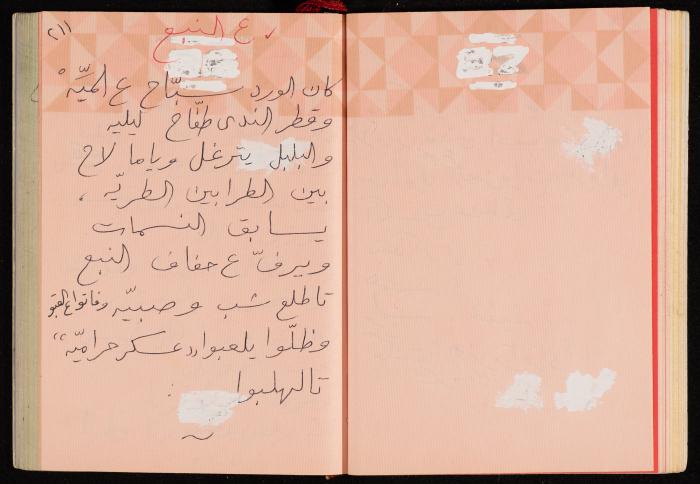 ٢١١
ع النبع
كان الورد سبّاح ع الميّه
وقطر الندى طفّاح ليليه
والبلبل يترغل وياما لاح
بين الطرابين الطريّه ،
يسابق النسمات
ويرفّ ع حفاف النبع
تا طلع شب وصبيّه وفاتوا ع القبو
وظلّوا يلعبوا "عسكر حراميّه"
تا لهلبوا :